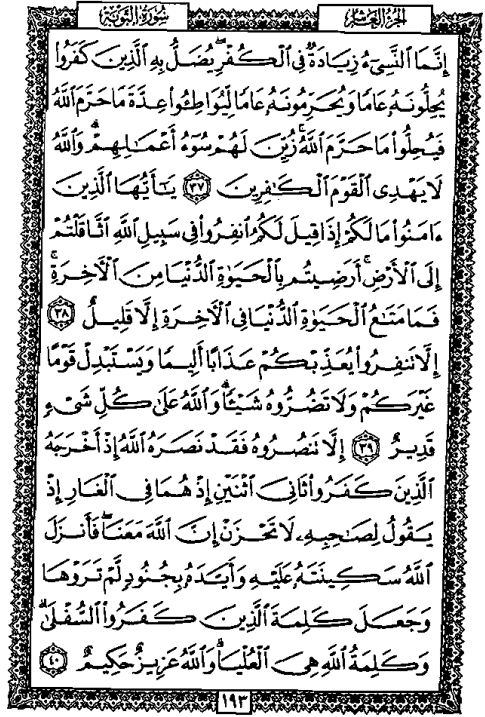 الجزء العاشر
سورة التوبة
إِنَّمَا ٱلنَّسِىٓءُ زِيَادَةٌ فِى ٱلْكُفْرِ يُضَلُّ بِهِ ٱلَّذِينَ كَفَرُوا۟
يُحِلُّونَهُۥ عَامًا وَيُحَرِّمُونَهُۥ عَامًا لِّيُوَاطِـُٔوا۟ عِدَّةَ مَا حَرَّمَ ٱللَّهُ
فَيُحِلُّوا۟ مَا حَرَّمَ ٱللَّهُ ۚ زُيِّنَ لَهُمْ سُوٓءُ أَعْمَـٰلِهِمْ ۗ وَٱللَّهُ
لَا يَهْدِى ٱلْقَوْمَ ٱلْكَـٰفِرِينَ ٣٧ يَـٰٓأَيُّهَا ٱلَّذِينَ
ءَامَنُوا۟ مَا لَكُمْ إِذَا قِيلَ لَكُمُ ٱنفِرُوا۟ فِى سَبِيلِ ٱللَّهِ ٱثَّاقَلْتُمْ
إِلَى ٱلْأَرْضِ ۚ أَرَضِيتُم بِٱلْحَيَوٰةِ ٱلدُّنْيَا مِنَ ٱلْـَٔاخِرَةِ ۚ
فَمَا مَتَـٰعُ ٱلْحَيَوٰةِ ٱلدُّنْيَا فِى ٱلْـَٔاخِرَةِ إِلَّا قَلِيلٌ ٣٨
إِلَّا تَنفِرُوا۟ يُعَذِّبْكُمْ عَذَابًا أَلِيمًا وَيَسْتَبْدِلْ قَوْمًا
غَيْرَكُمْ وَلَا تَضُرُّوهُ شَيْـًٔا ۗ وَٱللَّهُ عَلَىٰ كُلِّ شَىْءٍ
قَدِيرٌ ٣٩ إِلَّا تَنصُرُوهُ فَقَدْ نَصَرَهُ ٱللَّهُ إِذْ أَخْرَجَهُ
ٱلَّذِينَ كَفَرُوا۟ ثَانِىَ ٱثْنَيْنِ إِذْ هُمَا فِى ٱلْغَارِ إِذْ
يَقُولُ لِصَـٰحِبِهِۦ لَا تَحْزَنْ إِنَّ ٱللَّهَ مَعَنَا ۖ فَأَنزَلَ
ٱللَّهُ سَكِينَتَهُۥ عَلَيْهِ وَأَيَّدَهُۥ بِجُنُودٍ لَّمْ تَرَوْهَا
وَجَعَلَ كَلِمَةَ ٱلَّذِينَ كَفَرُوا۟ ٱلسُّفْلَىٰ ۗ
وَكَلِمَةُ ٱللَّهِ هِىَ ٱلْعُلْيَا ۗ وَٱللَّهُ عَزِيزٌ حَكِيمٌ ٤٠
١٩٣